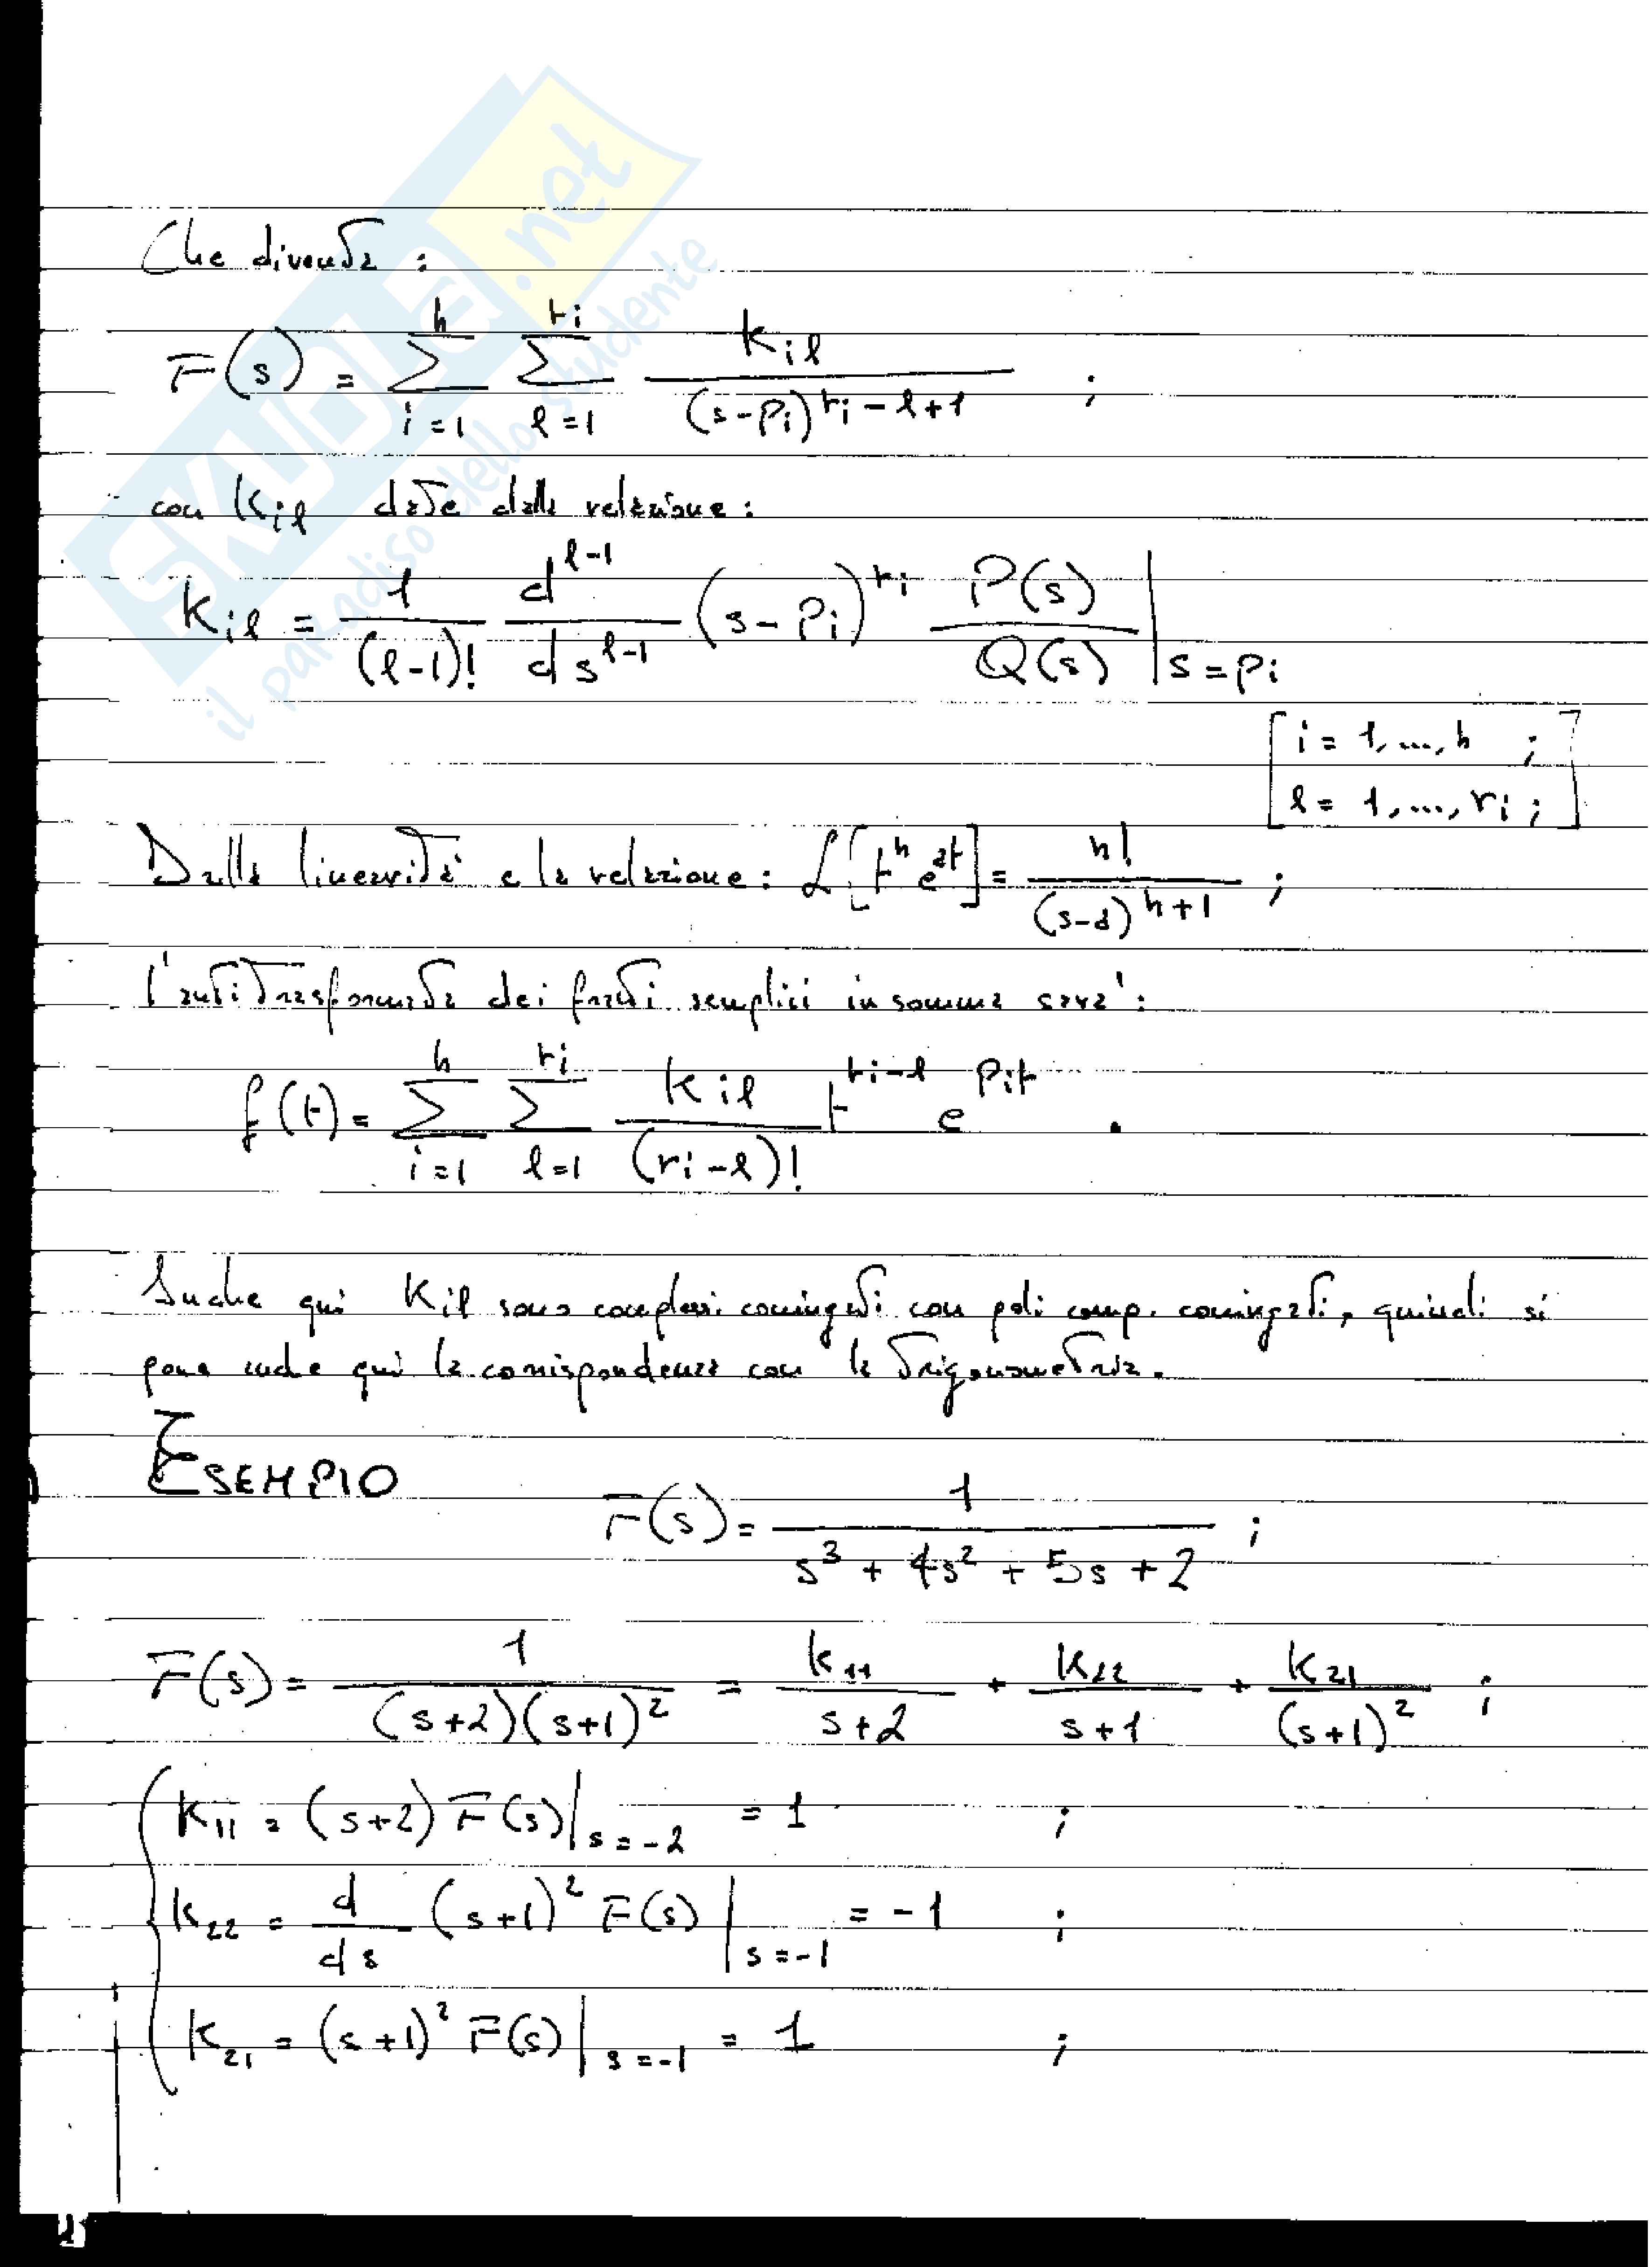 SKUOLA.net
il paradiso dello studente
Che diventa :
F(s) = ∑_{i=1}^{h} ∑_{l=1}^{r_i} K_{il} / (s-p_i)^{r_i-l+1} ;
con K_{il} date dalla relazione :
K_{il} = 1/(l-1)! d^{l-1}/ds^{l-1} (s-p_i)^{r_i} P(s)/Q(s) |_{s=p_i}
[ i = 1, ..., h ;
l = 1, ..., r_i ; ]
Dalla linearità e la relazione : ℒ[t^n e^{at}] = n!/(s-a)^{n+1} ;
l'antitrasformata dei fratti semplici in somma sara' :
f(t) = ∑_{i=1}^{h} ∑_{l=1}^{r_i} K_{il}/(r_i-l)! t^{r_i-l} e^{p_i t} .
Anche qui K_{il} sono complessi coniugati con poli comp. coniugati, quindi si
pone anche qui la corrispondenza con la trigonometria.
ESEMPIO
F(s) = 1/(s³ + 4s² + 5s + 2) ;
F(s) = 1/((s+2)(s+1)²) = K₁₁/(s+2) + K₂₂/(s+1) + K₂₁/(s+1)² ;
K₁₁ = (s+2) F(s)|_{s=-2} = 1 ;
K₂₂ = d/ds (s+1)² F(s)|_{s=-1} = -1 ;
K₂₁ = (s+1)² F(s)|_{s=-1} = 1 ;